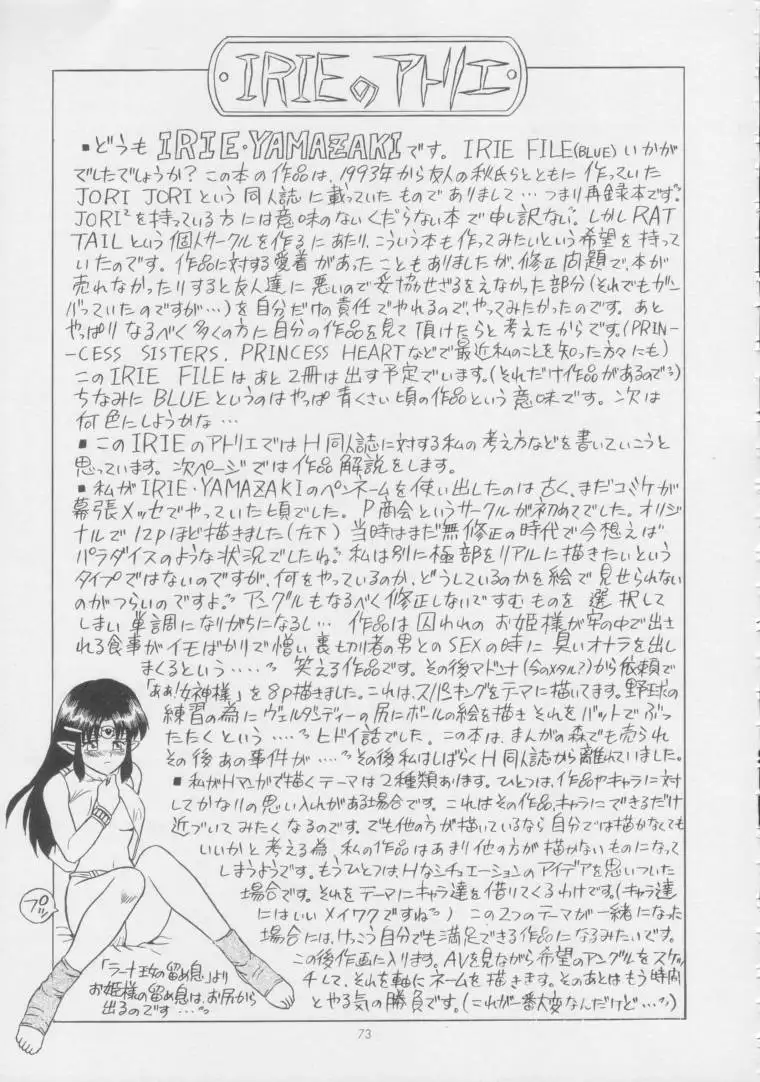 IRIEのアトリエ
■どうもIRIE・YAMAZAKIです。IRIE FILE(BLUE)いかが
でしたでしょうか?この本の作品は、1993年から友人の秋氏らとともに作っていた
JORI JORIという同人誌に載っていたものでありまして…つまり再録本です。
JORI²を持っている方には意味のないくだらない本で申し訳ない。しかしRAT
TAILという個人サークルを作るにあたり、こういう本も作ってみたいという希望を持って
いたのです。作品に対する愛着があったこともありましたが、修正問題で、本が
売れなかったりすると友人達に悪いので妥協せざるをえなかった部分(それでもガン
バっていたのですが…)を自分だけの責任でやれるので、やってみたかったのです。あと
やっぱりなるべく多くの方に自分の作品を見て頂けたらと考えたからです。(PRIN-
-CESS SISTERS, PRINCESS HEARTなどで最近私のことを知った方々にも)
このIRIE FILEはあと2冊は出す予定でいます。(それだけ作品があるので)
ちなみにBLUEというのはやっぱ青くさい頃の作品という意味です。次は
何色にしようかな…
■このIRIEのアトリエではH同人誌に対する私の考え方などを書いていこうと
思っています。次ページでは作品解説をします。
■私がIRIE・YAMAZAKIのペンネームを使い出したのは古く、まだコミケが
幕張メッセでやっていた頃でした。P商会というサークルが初めてでした。オリジ
ナルで12pほど描きました(左下)当時はまだ無修正の時代で今想えば
パラダイスのような状況でしたね。私は別に極部をリアルに描きたいという
タイプではないのですが、何をやっているのか、どうしているのかを絵で見せられない
のがつらいのですよ。アングルもなるべく修正しないですむものを選択して
しまい単調になりがちになるし…作品は囚われのお姫様が牢の中で出さ
れる食事がイモばかりで憎い裏切り者の男とのSEXの時に臭いオナラを出し
まくるという……笑える作品です。その後マドンナ(今のメタル?)から依頼で
「ああ!女神様」を8p描きました。これは、スパンキングをテーマに描いてます。野球の
練習の為にヴェルダンディーの尻にボールの絵を描きそれをバットでぶっ
たたくという……ヒドイ話でした。この本は、まんがの森でも売られ
その後あの事件が……その後私はしばらくH同人誌から離れていました。
■私がHマンガで描くテーマは2種類あります。ひとつは、作品やキャラに対
してかなりの思い入れがある場合です。これはその作品、キャラにできるだけ
近づいてみたくなるのです。でも他の方が描いているなら自分では描かなくても
いいかと考える為、私の作品はあまり他の方が描かないものになって
しまうようです。もうひとつはHなシチュエーションのアイデアを思いついた
場合です。それをテーマにキャラ達を借りてくるわけです。(キャラ達
にはいいメイワクですね)この2つのテーマが一緒になった
場合には、けっこう自分でも満足できる作品になるみたいです。
この後作画に入ります。AVを見ながら希望のアングルをスケッ
チして、それを軸にネームを描きます。そのあとはもう時間
とやる気の勝負です。(これが一番大変なんだけど…)
プッ
「ラーナ王女の留め息」より
お姫様の留め息は、お尻から
出るのです…
73